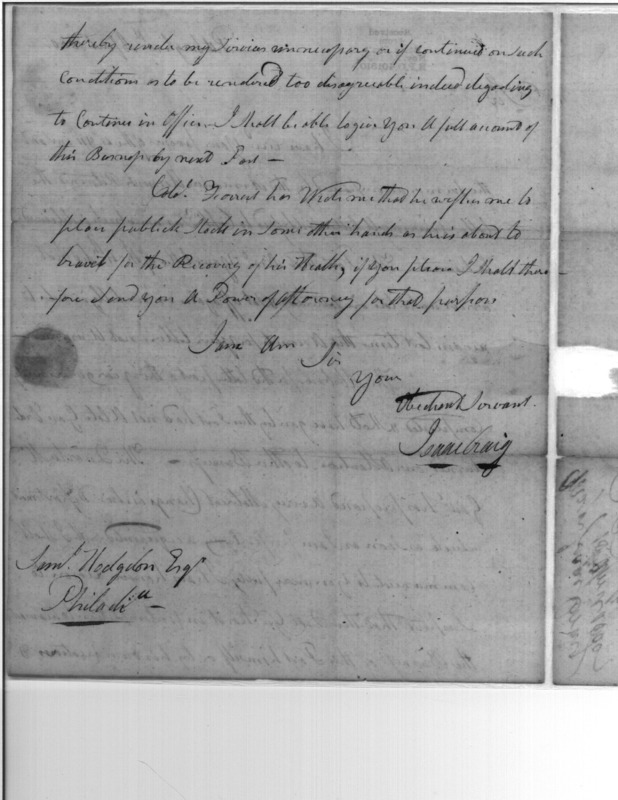 thereby render my Services unnecessary or if continued on such
Conditions as to be rendered too disagreeable indeed degading
to Continue in Office. I shall be able to give You A full account of
this Business by next Post —
Colo. has Wrote me that he wishes me to
place publick Stock in Some other hands as he is about to
travil for the Recovery of his Health, if You please I shall there-
fore Send you A Power of attorney for that purpose
I am Sir
Your
Obedient Servant
Isaac Craig
Saml. Hodgdon Esqr.
Philadia